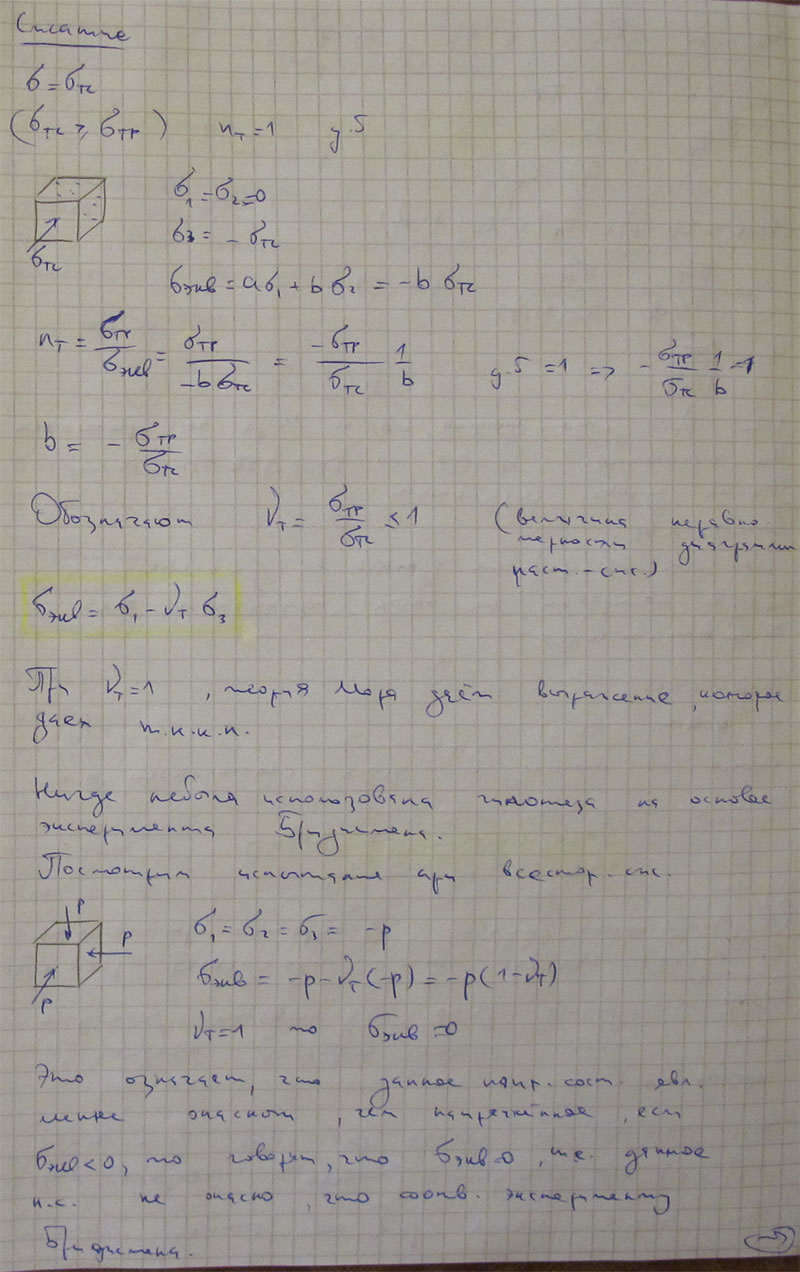 Сжатие
σ = σтс
(σтс ≥ σтр) nт = 1 y.5
σтс
σ₁ = σ₂ = 0
σ₃ = - σтс
σэкв = aσ₁ + bσ₂ = -b σтс
nт = σтр/σэкв = σтр/(-b σтс) = -σтр/σтс 1/b y.5 = 1 => - σтр/σтс 1/b = 1
b = - σтр/σтс
Обозначают νт = σтр/σтс ≤ 1 (величина неравно-
мерности диаграмм
раст.-сж.)
σэкв = σ₁ - νт σ₃
При νт = 1, теория Мора даёт выражение, которое
дает т.н.к.н.
Нигде небыла использована гипотеза на основе
эксперимента Бриджмена.
Посмотрим испытание при всестор. сж.
p
p
p
σ₁ = σ₂ = σ₃ = -p
σэкв = -p - νт (-p) = -p(1-νт)
νт = 1 то σэкв = 0
Это означает, что данное напр. сост. явл.
менее опасном, чем напряжённое, если
σэкв < 0, то говорят, что σэкв = 0, т.е. данное
н.с. не опасно, что соотв. эксперименту
Бриджмена.
→